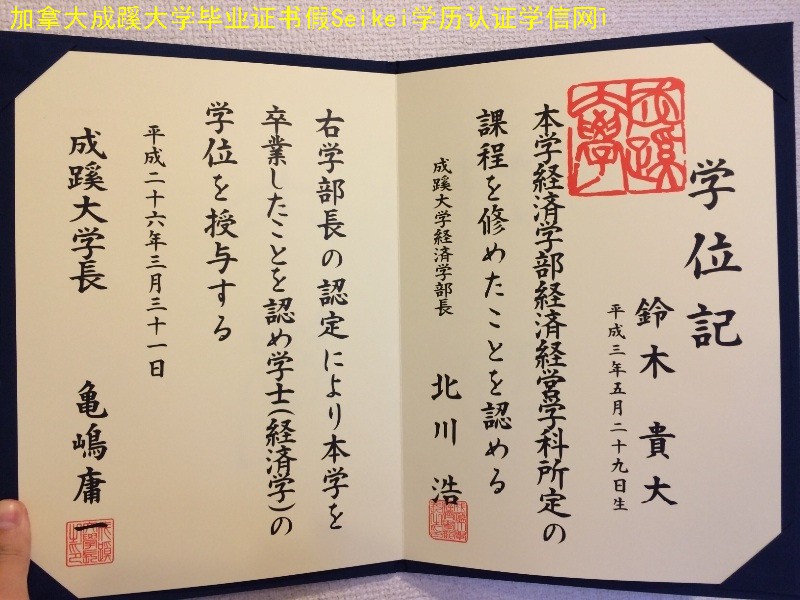 加拿大成蹊大学毕业证书假Seikei学历认证学信网i
学位記
鈴木貴大
平成三年五月二十九日生
本学経済学部経済経営学科所定の
課程を修めたことを認める
成蹊大学経済学部長
北川浩
右学部長の認定により本学を
卒業したことを認め学士(経済学)の
学位を授与する
平成二十六年三月三十一日
成蹊大学長
亀嶋庸一